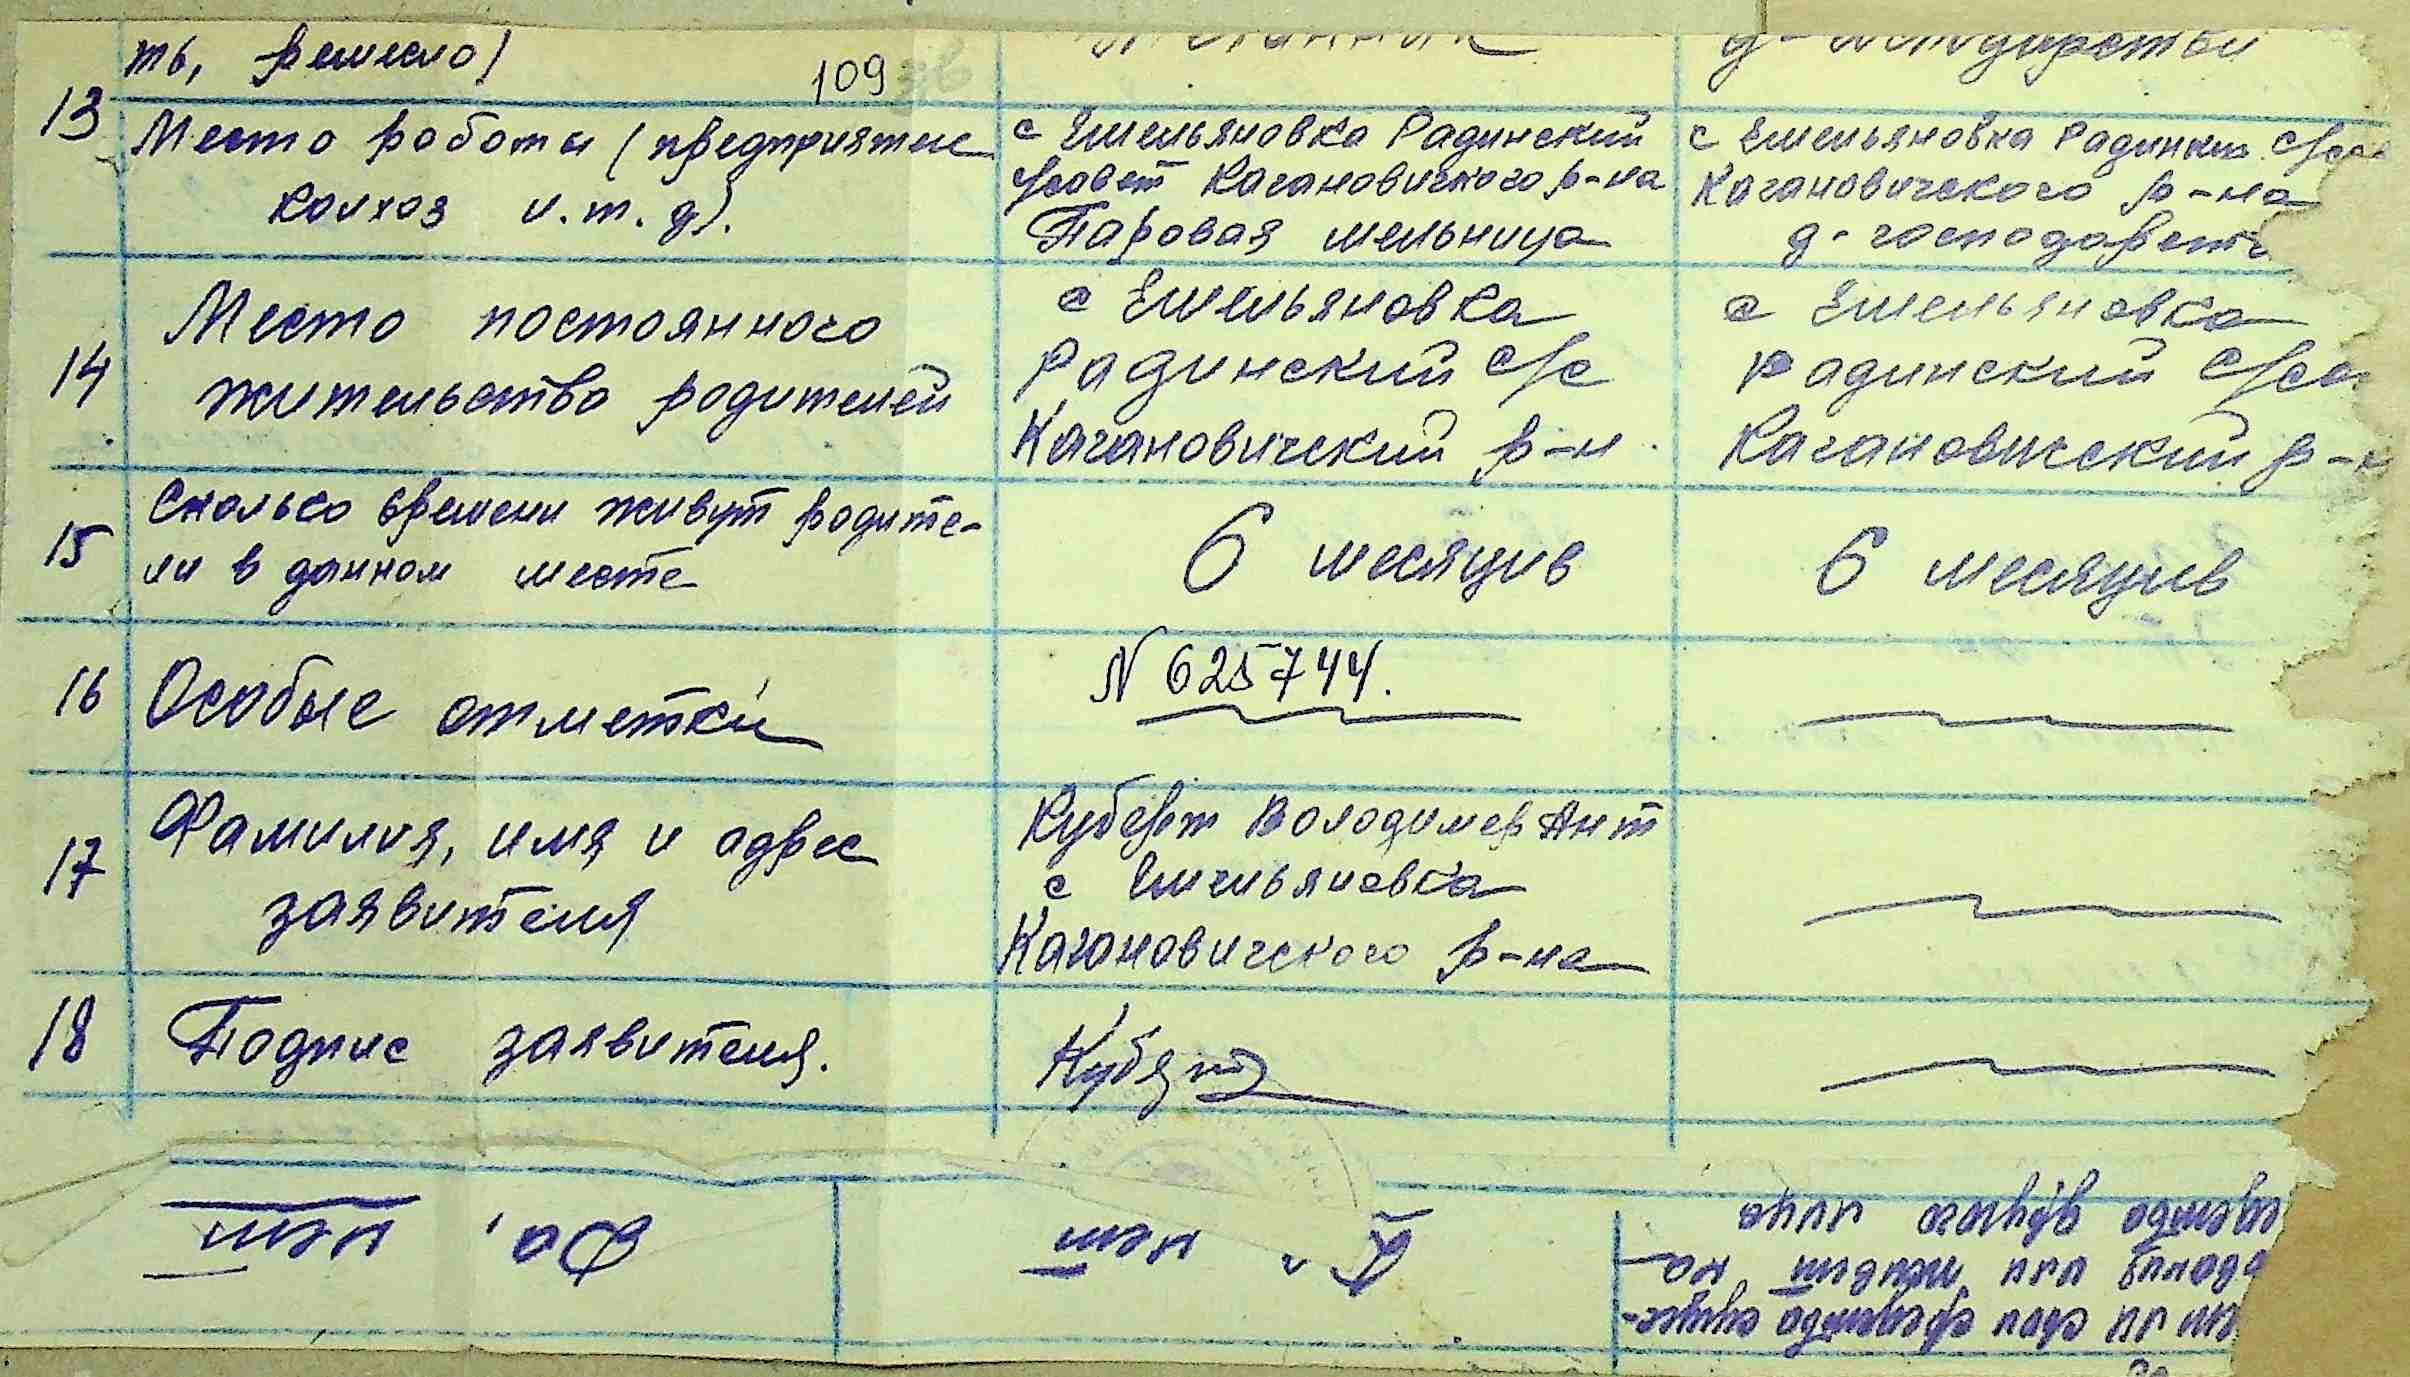 ть, ремесло)
109
механник
д-господарстви
13
Место работы (предприятие
колхоз и.т.д).
с Емельяновка Радинский
с/совет Кагановичского р-на
Паровая мельница
с Емельяновка Радински с/сов
Кагановичского р-на
д-господарств
14
Место постоянного
жительство родителей
с Емельяновка
Радинский с/с
Кагановичский р-н.
с Емельяновка
Радинский с/сов
Кагановичский р-н
15
Сколько времени живут родите-
ли в данном месте
6 месяцив
6 месяцив
16
Особые отметки
N 625744.
17
Фамилия, имя и адрес
заявителя
Куберт Володимер Ант
с Емельяновка
Кагановичского р-на
18
Подпис заявителя.
Куб
ли ли свои средства суще-
или живет на
средства другого лица
нет
Да, нет